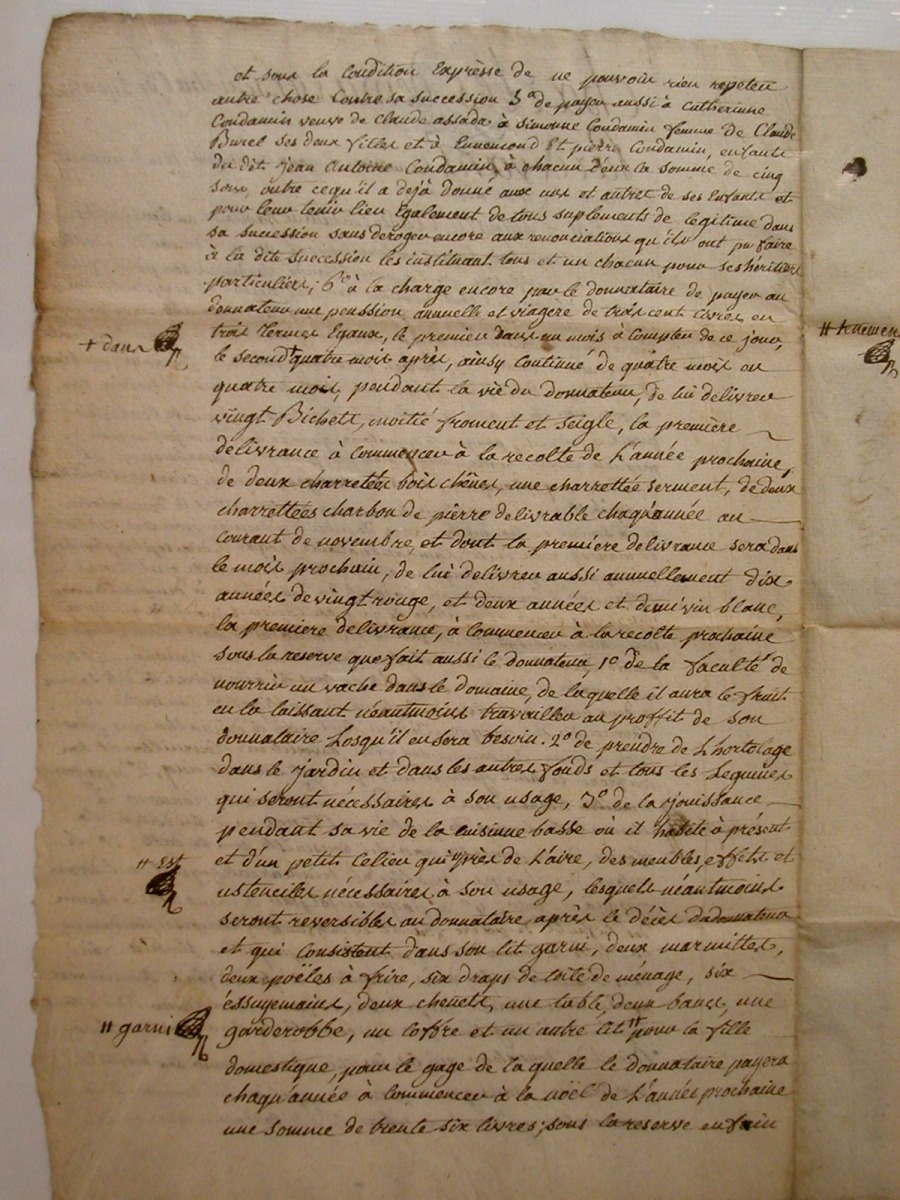 et sous la Condition Expresse de ne pouvoir rien repeter
autre chose Contre sa succession 5° de payer aussi à Catherinne
Condamin veuve de Claude assada à simonne Condamin femme De Claude
Burel ses deux filles et à Ennemond Et pierre Condamin, enfants
du dit Jean Antoine Condamin, à chacun d'eux la somme de cinq
sous outre cequ'il a dejà donné aux uns et autres de ses Enfants et
pour leur tenir lieu Egalement de tous suplements de legitime dans
sa succession sans deroger encore aux renonciations qu'ils ont pu faire
à la dite succession les instituant tous et un chacun pour ses héritiers
particuliers, 6° à la charge encore par le donnataire de payer au
donnateur une penssion annuelle et viagere de trois cent livres en
trois termes Egaux, le premier dans un mois à Compter de ce jour,
+ dans
le second + quatre mois après, ainsy Continué de quatre mois en
quatre mois, pendant la vie du donnateur, de lui delivrer
vingt Bichets, moitié froment et seigle, la première
delivrance à commencer à la recolte de L'année prochaine,
de deux charretées bois chênes, une charrettée serment, de deux
charrettées charbon de pierre delivrable chaqu'année au
courant de novembre, et dont la premiere delivrance sera dans
le mois prochain, de lui delivrer aussi annuellement dix
années de vingt rouge, et deux années et demi vin blanc,
la premiere delivrance, à Commencer à la recolte prochaine
sous la reserve que fait aussi le donnateur, 1° de la faculté de
nourrir un vache dans le domaine, de laquelle il aura le fruit
en la laissant néantmoins travailler au proffit de son
donnataire Losqu'il en sera besoin. 2° de prendre de L'hortolage
dans le jardin et dans les autres fonds et tous les Legumes
qui seront nécessaires à son usage, 3° de la jouissance
pendant sa vie de la cuisinne basse où il habite à présent
et d'un petit Celier qui " près de L'aire, des meubles, effets et
" Est
ustenciles nécessaires à son usage, lesquels néantmoins
seront reversibles au donnataire après le décès du donnateur
et qui Consistent dans son lit garni, deux marmittes,
deux poëles à frire, six draps de toile de ménage, six
essuyemains, deux chenets, une table, deux bancs, une
" garni
garderobbe, un Coffre et un autre lit " pour la fille
domestique, pour le gage de la quelle le donnataire payera
chaqu'année à commencer à la noël de L'année prochaine
une somme de trente six livres; sous la reserve enfin